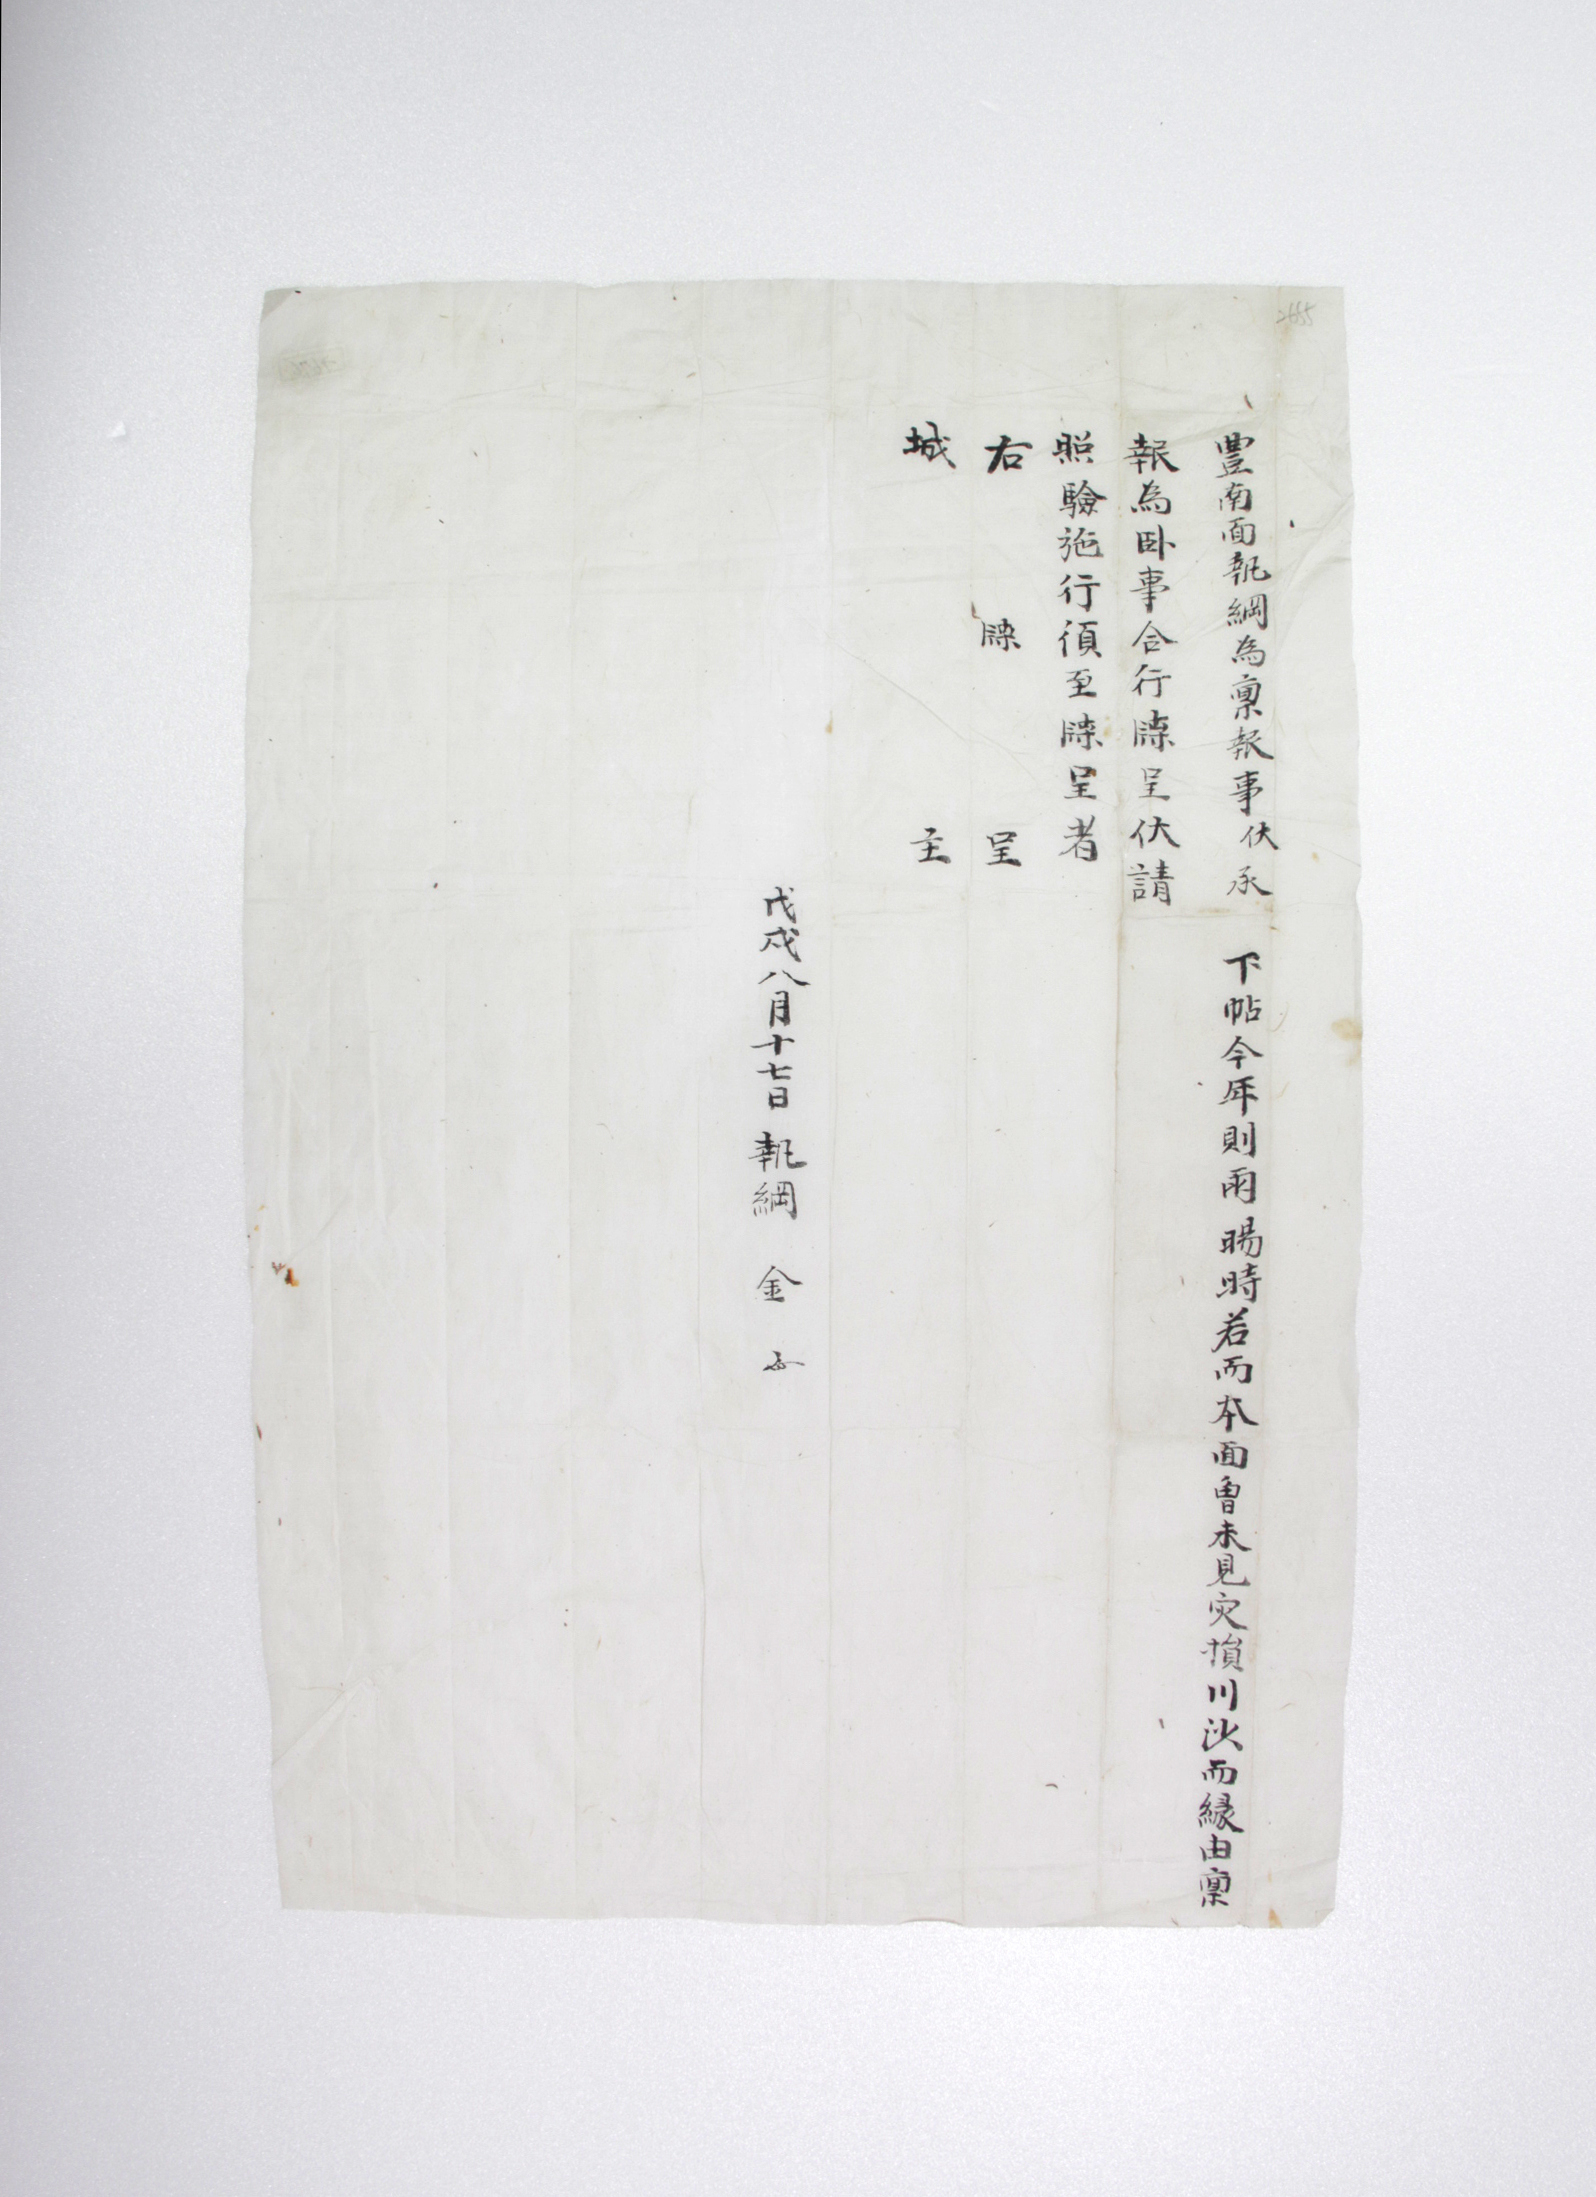 2655
豊南面執綱為稟報事伏承 下帖今年則雨暘時若而本面曾未見灾損川汰而緣由稟
報為卧事合行牒呈伏請
照驗施行須至牒呈者
右 牒 呈
城 主
戊戌八月十七日 執綱 金